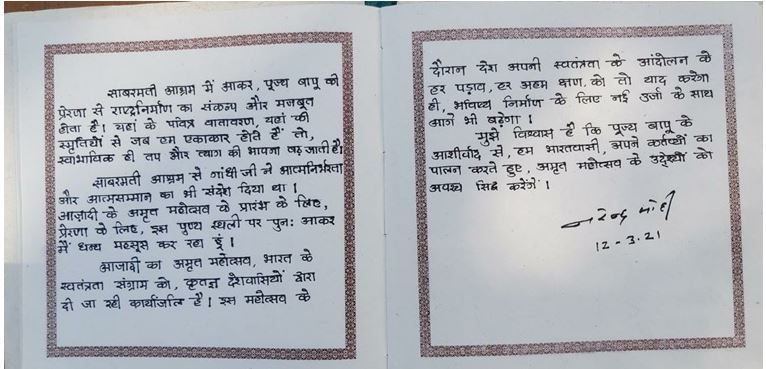 साबरमती आश्रम में आकर, पूज्य बापू की
प्रेरणा से राष्ट्रनिर्माण का संकल्प और मजबूत
होता है। यहां के पवित्र वातावरण, यहां की
स्मृतियों से जब हम एकाकार होते हैं तो,
स्वाभाविक ही तप और त्याग की भावना बढ़ जाती है।
साबरमती आश्रम से गांधी जी ने आत्मनिर्भरता
और आत्मसम्मान का भी संदेश दिया था।
आज़ादी के अमृत महोत्सव के प्रारंभ के लिए,
प्रेरणा के लिए, इस पुण्य स्थली पर पुन: आकर
मैं धन्य महसूस कर रहा हूं।
आजादी का अमृत महोत्सव, भारत के
स्वतंत्रता संग्राम को, कृतज्ञ देशवासियों द्वारा
दी जा रही कार्यांजलि है। इस महोत्सव के
दौरान देश अपनी स्वतंत्रता के आंदोलन के
हर पड़ाव, हर अहम क्षण, को तो याद करेगा
ही, भविष्य निर्माण के लिए नई उर्जा के साथ
आगे भी बढ़ेगा।
मुझे विश्वास है कि पूज्य बापू के
आशीर्वाद से, हम भारतवासी, अपने कर्तव्यों का
पालन करते हुए, अमृत महोत्सव के उद्देश्यों को
अवश्य सिद्ध करेंगे।
नरेन्द्र मोदी
12-3-21